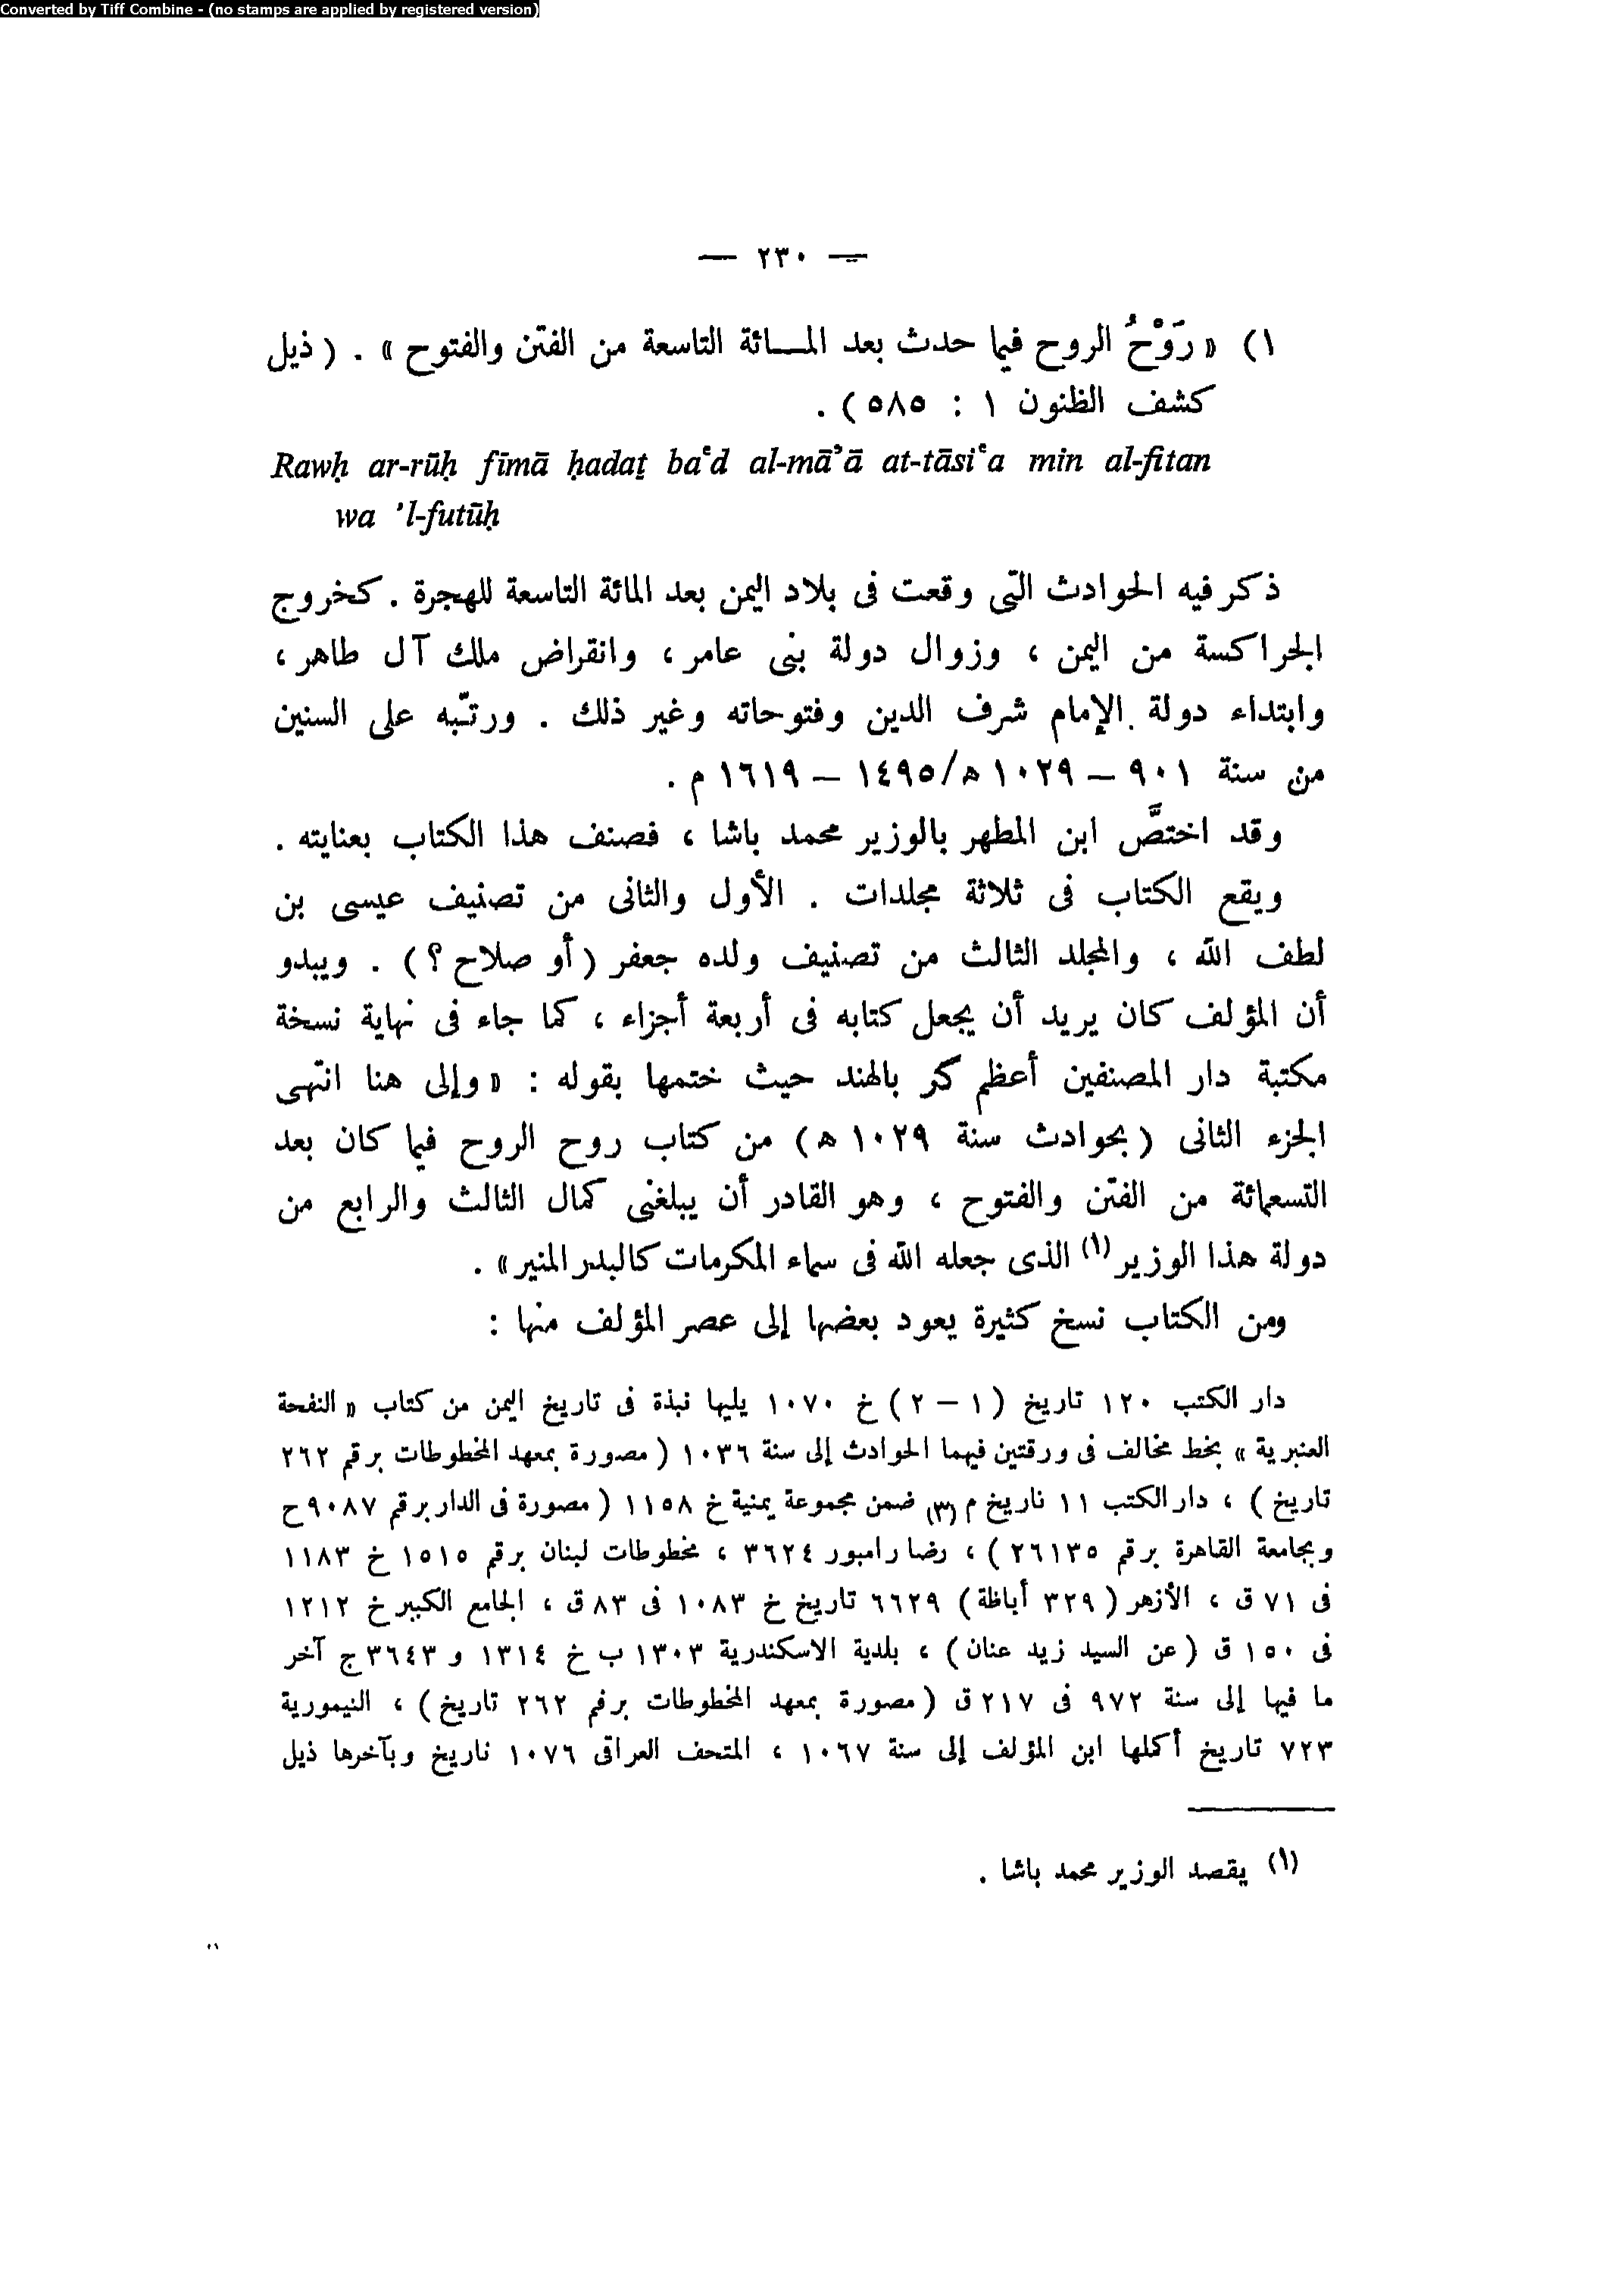 Converted by Tiff Combine - (no stamps are applied by registered version)
— ٢٣٠ —
١) « رَوْحُ الروح فيما حدث بعد المائة التاسعة من الفتن والفتوح » . ( ذيل
كشف الظنون ١ : ٥٨٥ ) .
Rawḥ ar-rūḥ fīmā ḥadaṯ baʿd al-mā’ā at-tāsiʿa min al-fitan
wa ’l-futūḥ
ذكر فيه الحوادث التى وقعت فى بلاد اليمن بعد المائة التاسعة للهجرة . كخروج
الجراكسة من اليمن ، وزوال دولة بنى عامر ، وانقراض ملك آل طاهر ،
وابتداء دولة الإمام شرف الدين وفتوحاته وغير ذلك . ورتّبه على السنين
من سنة ٩٠١ – ١٠٢٩ ه/١٤٩٥ – ١٦١٩ م .
وقد اختصَّ ابن المطهر بالوزير محمد باشا ، فصنف هذا الكتاب بعنايته .
ويقع الكتاب فى ثلاثة مجلدات . الأول والثانى من تصنيف عيسى بن
لطف الله ، والمجلد الثالث من تصنيف ولده جعفر ( أو صلاح ؟ ) . ويبدو
أن المؤلف كان يريد أن يجعل كتابه فى أربعة أجزاء ، كما جاء فى نهاية نسخة
مكتبة دار المصنفين أعظم كر بالهند حيث ختمها بقوله : « وإلى هنا انتهى
الجزء الثانى ( بحوادث سنة ١٠٢٩ ه ) من كتاب روح الروح فيما كان بعد
التسعمائة من الفتن والفتوح ، وهو القادر أن يبلغنى كمال الثالث والرابع من
دولة هذا الوزير (١) الذى جعله الله فى سماء المكرمات كالبدر المنير » .
ومن الكتاب نسخ كثيرة يعود بعضها إلى عصر المؤلف منها :
دار الكتب ١٢٠ تاريخ ( ١ – ٢ ) خ ١٠٧٠ يليها نبذة فى تاريخ اليمن من كتاب « النفحة
العنبرية » بخط مخالف فى ورقتين فيهما الحوادث إلى سنة ١٠٣٦ ( مصورة بمعهد المخطوطات برقم ٢٦٢
تاريخ ) ، دار الكتب ١١ تاريخ م (٣) ضمن مجموعة يمنية خ ١١٥٨ ( مصورة فى الدار برقم ٩٠٨٧ ح
وبجامعة القاهرة برقم ٢٦١٣٥ ) ، رضا رامبور ٣٦٢٤ ، مخطوطات لبنان برقم ١٥١٥ خ ١١٨٣
فى ٧١ ق ، الأزهر ( ٣٢٩ أباظة ) ٦٦٢٩ تاريخ خ ١٠٨٣ فى ٨٣ ق ، الجامع الكبير خ ١٢١٢
فى ١٥٠ ق ( عن السيد زيد عنان ) ، بلدية الاسكندرية ١٣٠٣ ب خ ١٣١٤ و ٣٦٤٣ ج آخر
ما فيها إلى سنة ٩٧٢ فى ٢١٧ ق ( مصورة بمعهد المخطوطات برقم ٢٦٢ تاريخ ) ، التيمورية
٧٢٣ تاريخ أكملها ابن المؤلف إلى سنة ١٠٦٧ ، المتحف العراقى ١٠٧٦ تاريخ وبآخرها ذيل
(١) يقصد الوزير محمد باشا .